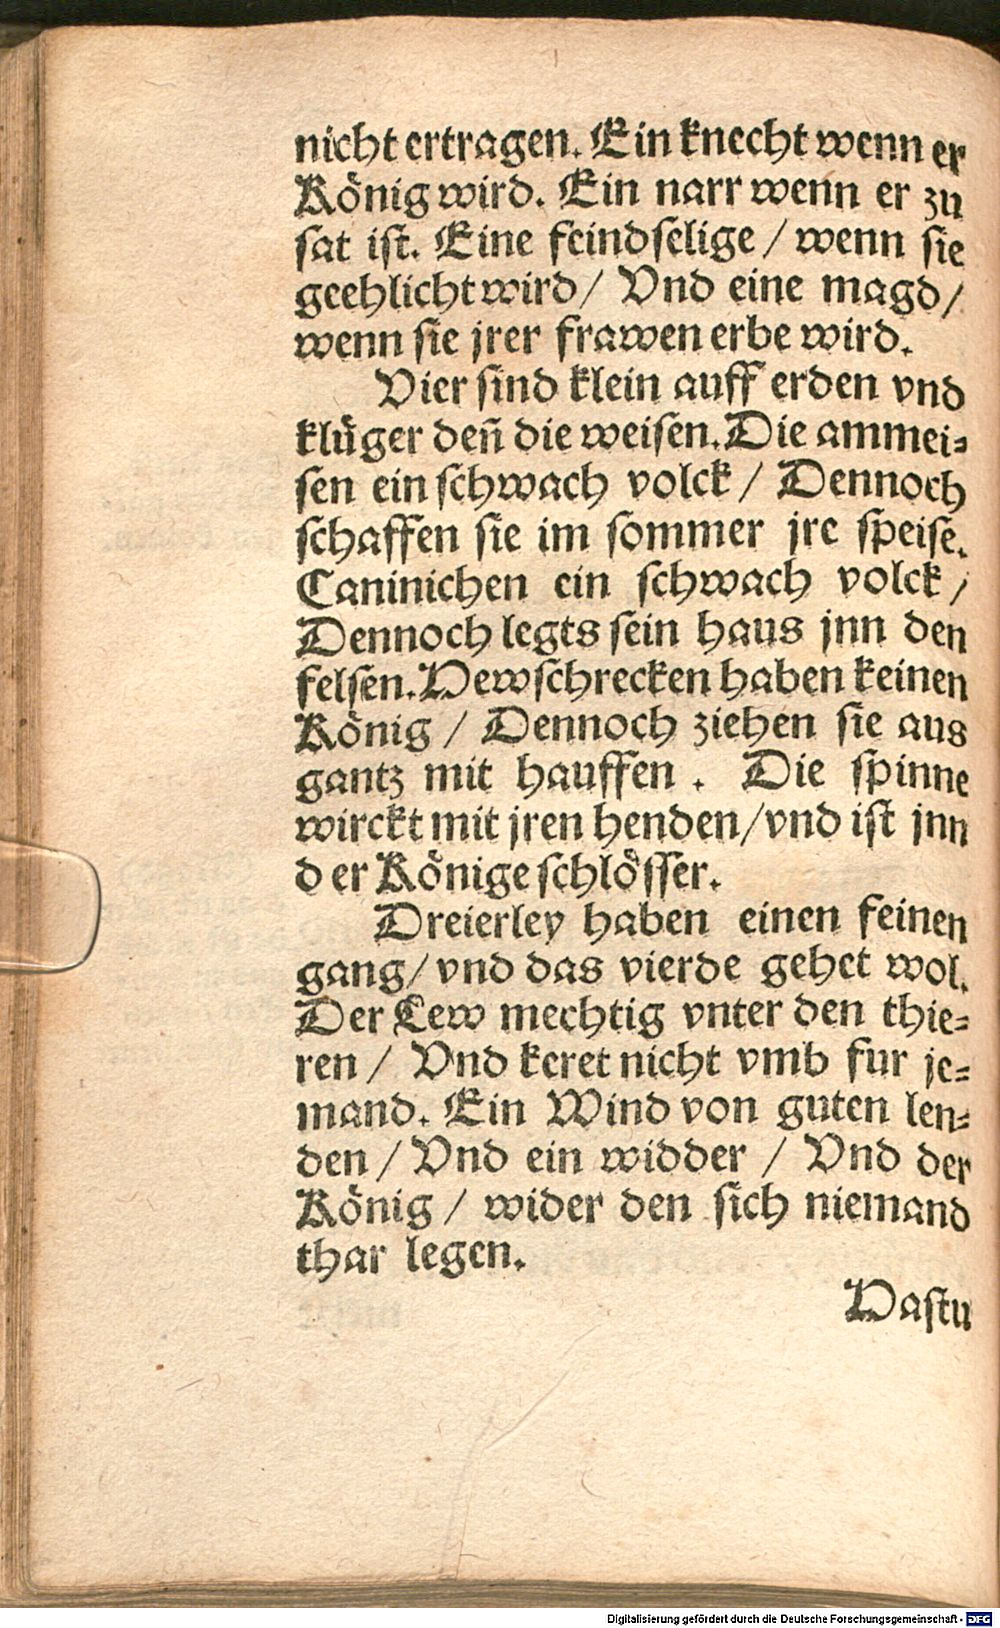 nicht ertragen. Ein knecht wenn er
König wird. Ein narr wenn er zu
sat ist. Eine feindselige / wenn sie
geehlicht wird / Vnd eine magd /
wenn sie jrer frawen erbe wird.
Vier sind klein auff erden vnd
klüger deñ die weisen. Die ammei-
sen ein schwach volck / Dennoch
schaffen sie im sommer jre speise.
Caninichen ein schwach volck /
Dennoch legts sein haus jnn den
felsen. Hewschrecken haben keinen
König / Dennoch ziehen sie aus
gantz mit hauffen . Die spinne
wirckt mit jren henden / vnd ist jnn
der Könige schlösser.
Dreierley haben einen feinen
gang / vnd das vierde gehet wol.
Der Lew mechtig vnter den thie-
ren / Vnd keret nicht vmb fur je-
mand. Ein Wind von guten len-
den / Vnd ein widder / Vnd der
König / wider den sich niemand
thar legen.
Hastu
Digitalisierung gefördert durch die Deutsche Forschungsgemeinschaft - DFG